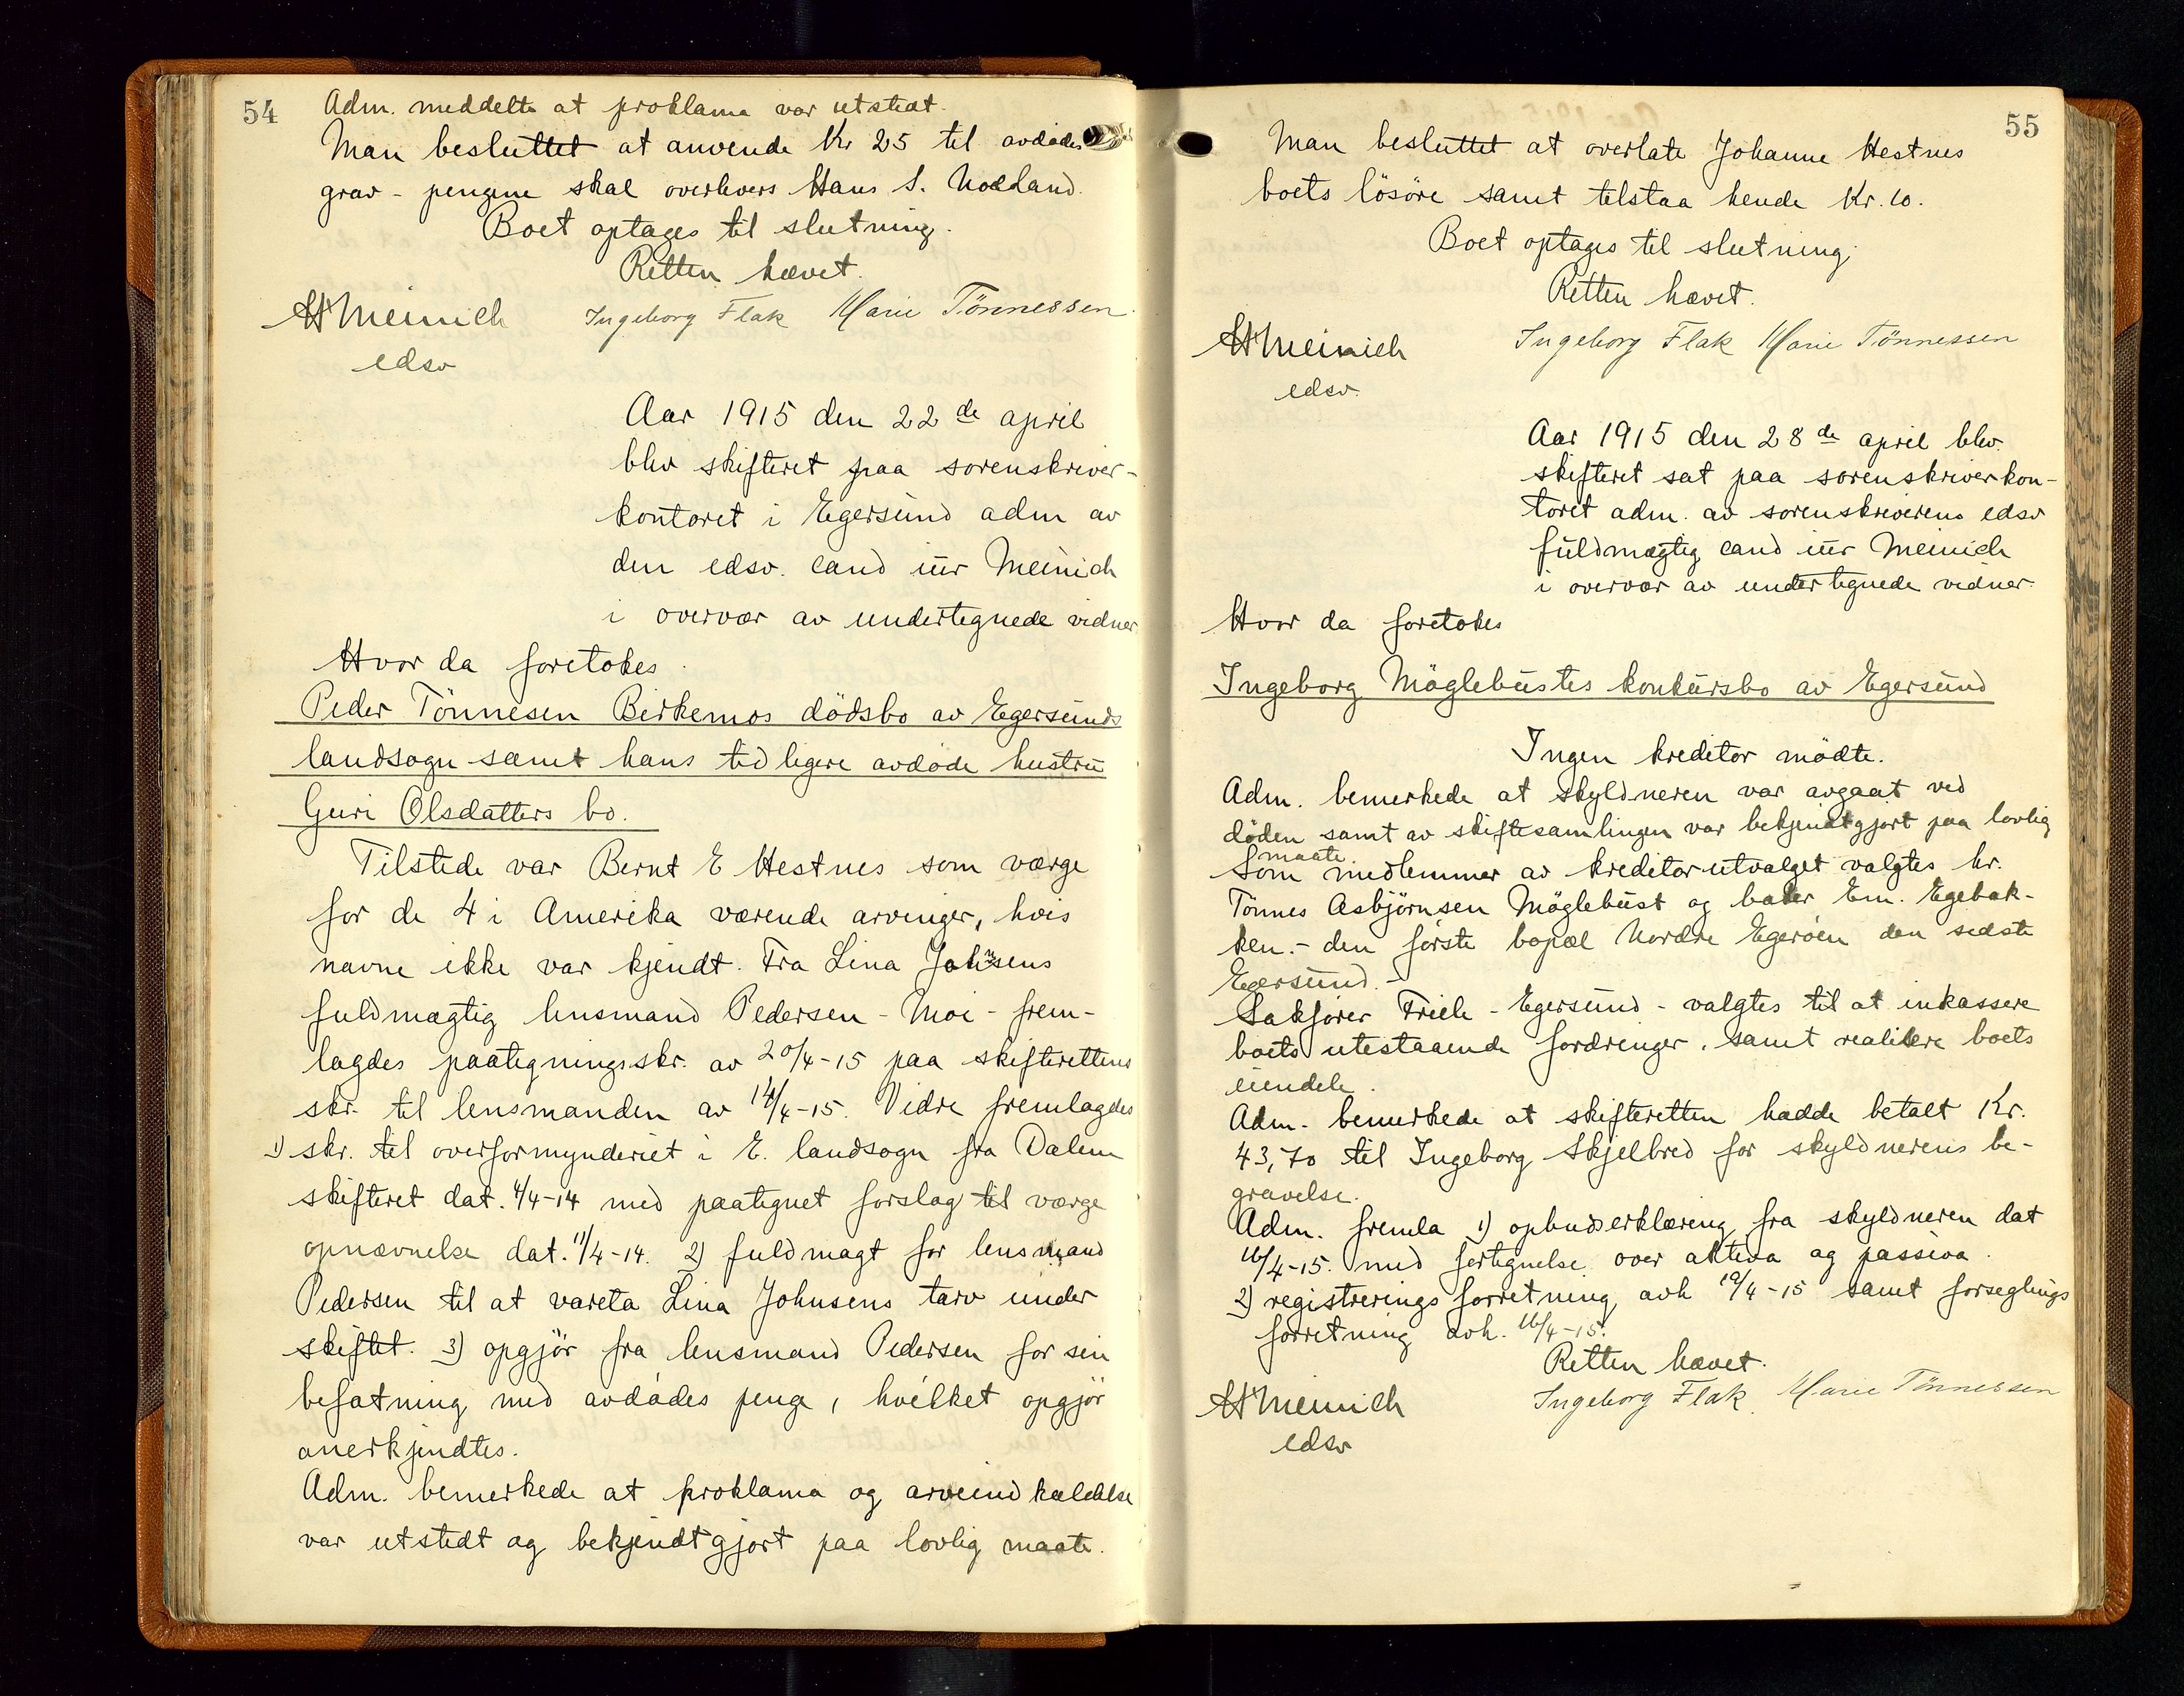 54
Adm. meddelte at proklama var utstedt.
Man besluttet at anvende Kr 25 til avdödes
grav - pengene skal overleveres Hans S. Nodland.
Boet optages til slutning.
Retten hævet.
HMeinich Ingeborg Flak Marie Tönnessen
edsv
Aar 1915 den 22de april
blev skifteret paa sorenskriver-
kontoret i Egersund adm av
den edsv. cand iur Meinich
i overvær av undertegnede vidner
Hvor da foretokes
Peder Tönnesen Birkemos dödsbo av Egersunds
landsogn samt hans tidligere avdöde hustru
Guri Olsdatters bo.
Tilstede var Bernt E Hestnes som værge
for de 4 i Amerika værende arvinger, hvis
navne ikke var kjendt. Fra Lina Johnsens
fuldmægtig lensmand Pedersen - Moi - frem-
lagdes paategningsskr. av 20/4-15 paa skifterettens
skr. til lensmanden av 14/4-15. Vidre fremlagdes
1) skr. til overformynderiet i E. landsogn fra Dalene
skifteret dat. 4/4-14 med paategnet forslag til værge
opnævnelse dat. 11/4-14. 2) fuldmagt for lensmand
Pedersen til at vareta Lina Johnsens tarv under
skiftet. 3) opgjör fra lensmand Pedersen for sin
befatning med avdödes penge, hvilket opgjör
anerkjendtes.
Adm. bemerkede at proklama og arveindkaldelse
var utstedt og bekjendtgjort paa lovlig maate.
55
Man besluttet at overlate Johanne Hestnes
boets lösöre samt tilstaa hende Kr. 10.
Boet optages til slutning.
Retten hævet.
HMeinich Ingeborg Flak Marie Tönnessen
edsv.
Aar 1915 den 28de april blev
skifteret sat paa sorenskriverkon-
toret adm. av sorenskriverens edsv
fuldmægtig cand iur Meinich
i overvær av undertegnede vidner.
Hvor da foretokes
Ingeborg Möglebustes konkursbo av Egersund
Ingen kreditor mödte.
Adm. bemerkede at skyldneren var avgaat ved
döden samt av skiftesamlingen var bekjendtgjort paa lovlig
maate.
Som medlemmer av kreditorutvalget valgtes hr.
Tönnes Asbjörnsen Möglebust og baker Em. Egebak-
ken. - den förste bopæl Nordre Egeröen den sidste
Egersund. -
Sakförer Friele - Egersund - valgtes til at inkassere
boets utestaaende fordringer, samt realisere boets
eiendele.
Adm. bemerkede at skifteretten hadde betalt Kr.
43,70 til Ingeborg Skjelbred for skyldnerens be-
gravelse.
Adm. fremla 1) opbudserklæring fra skyldneren dat
16/4-15. med fortegnelse over aktiva og passiva.
2) registreringsforretning avh 19/4-15 samt forseglings
forretning avh. 16/4-15.
Retten hævet.
HMeinich Ingeborg Flak Marie Tönnessen
edsv